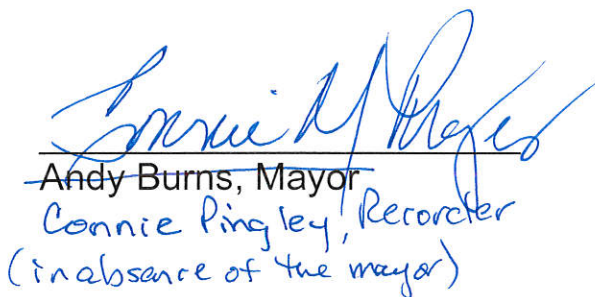 Connie M Pingley
Andy Burns, Mayor
Connie Pingley, Recorder
(in absence of the mayor)